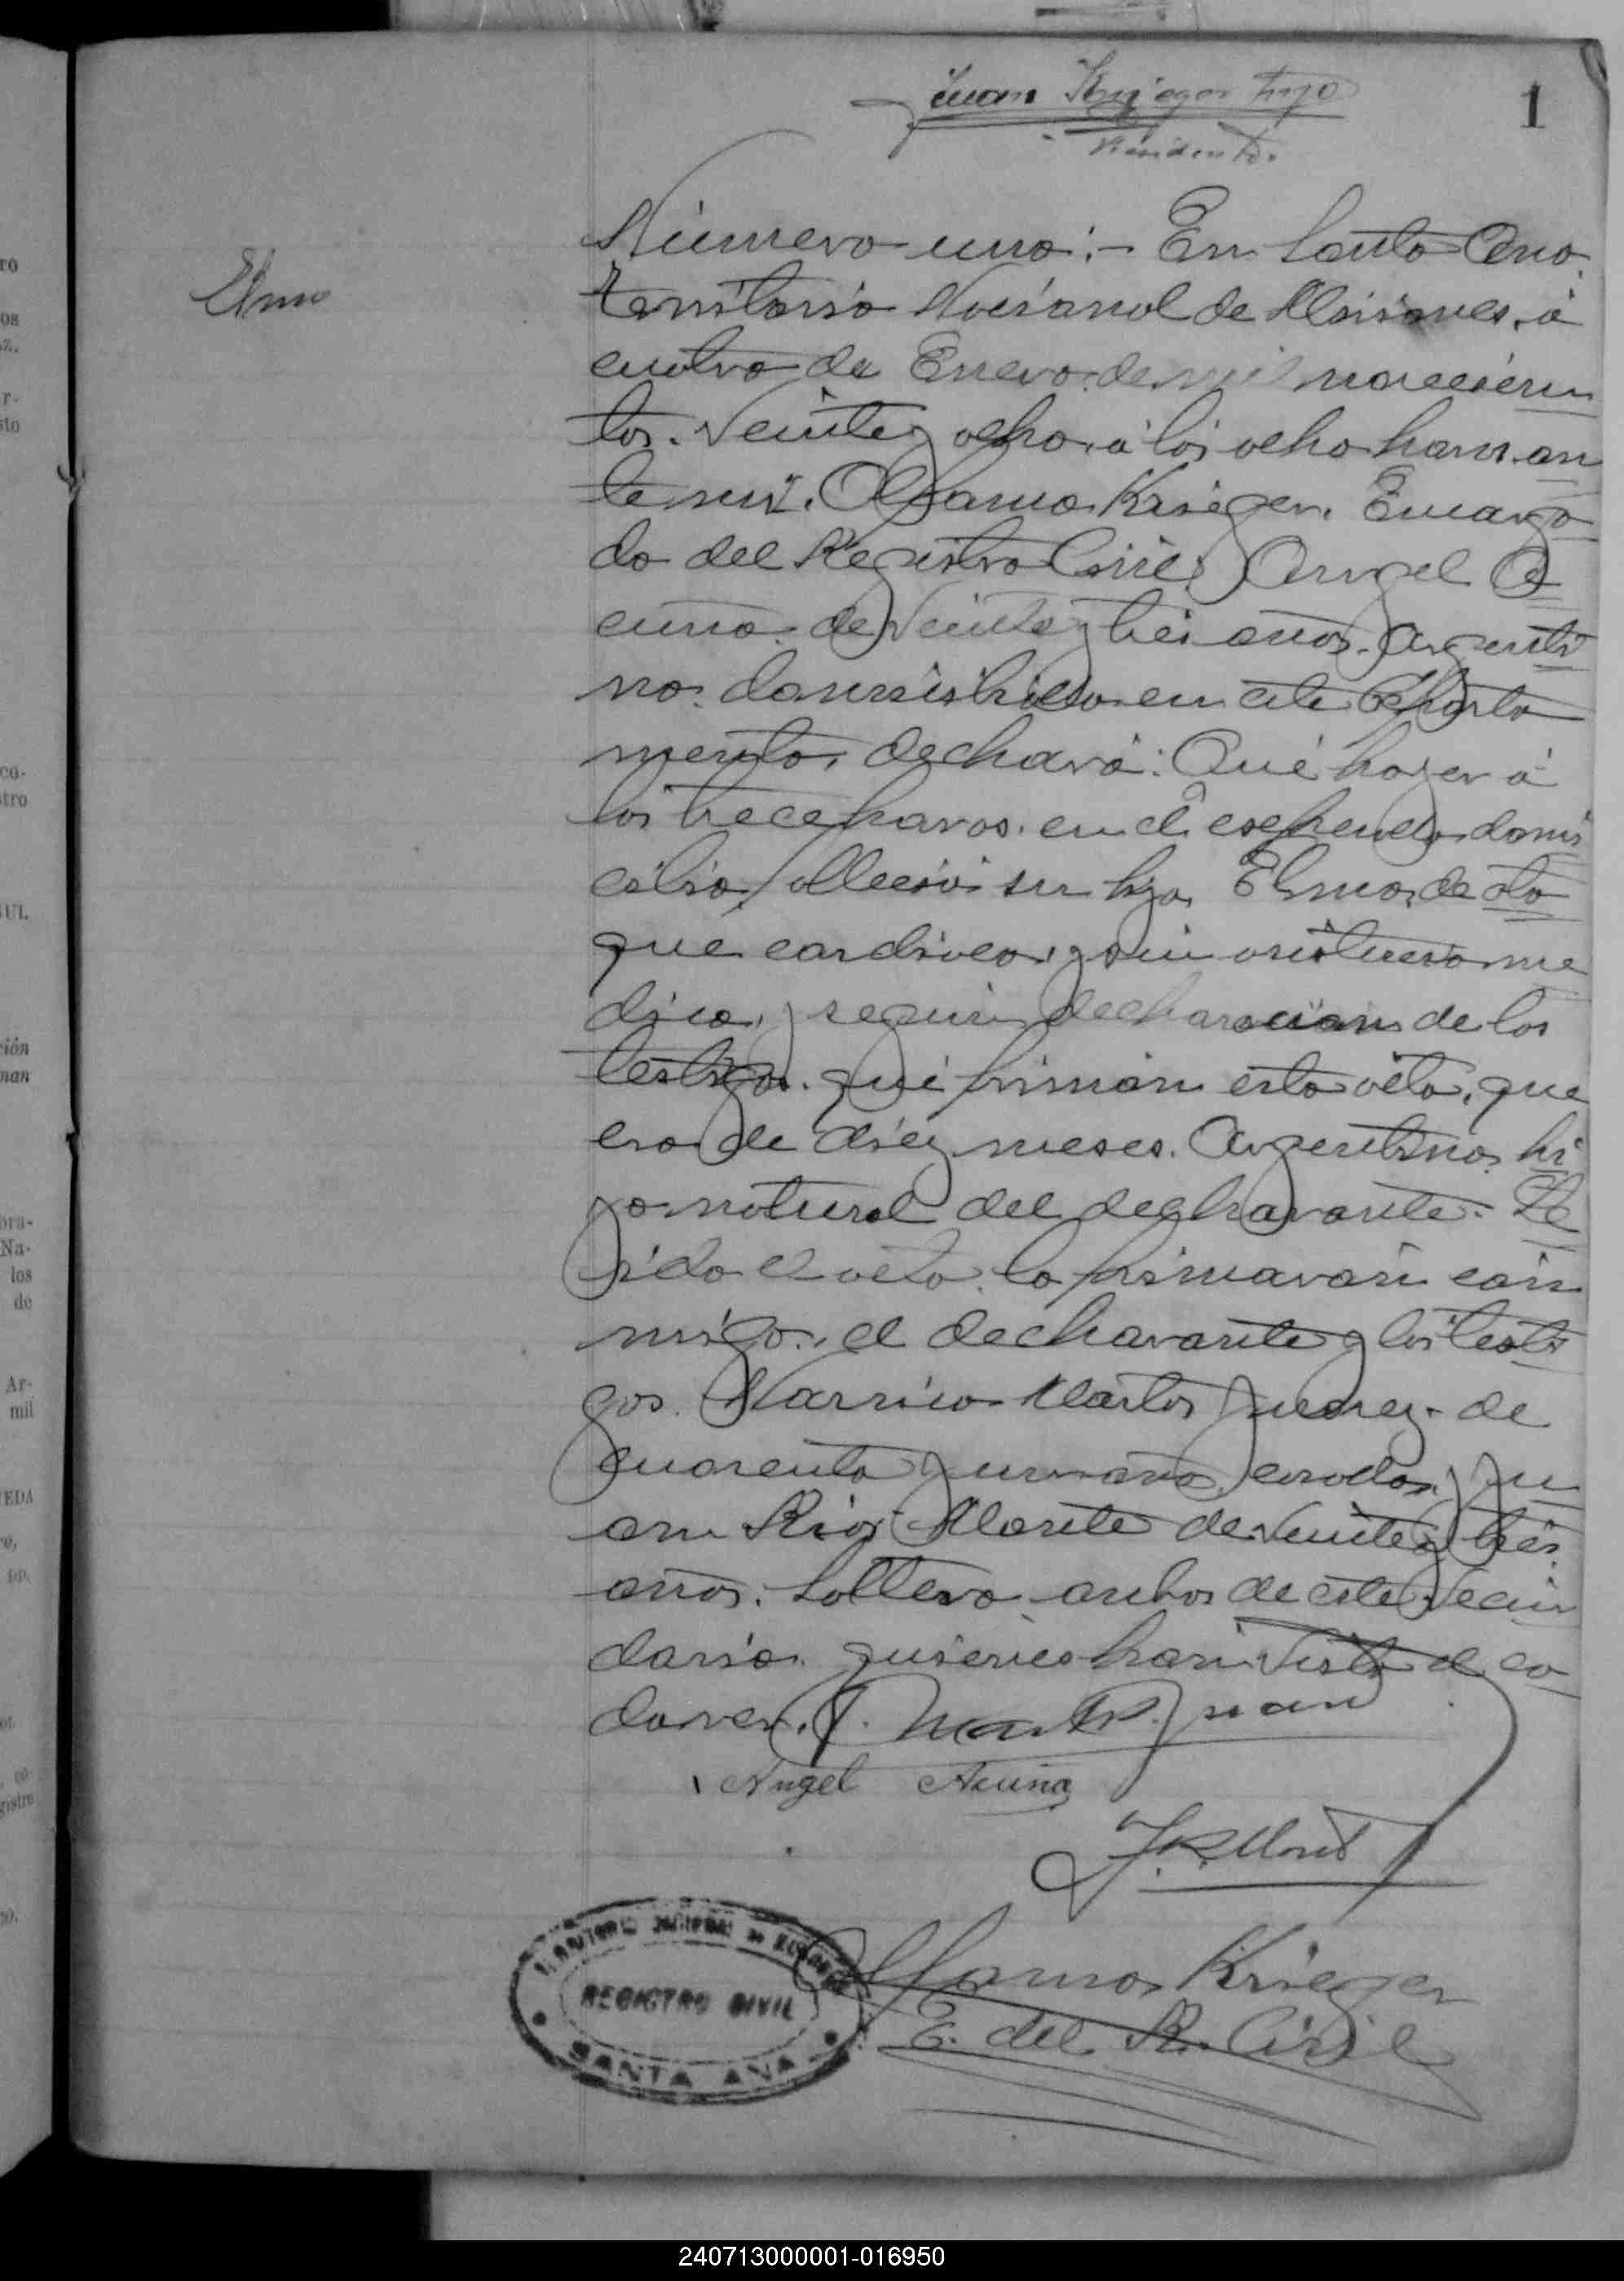 Juan Krieger hijo
Presidente.
1
Elmo
Número uno:- En Santa Ana.
Territorio Nacional de Misiones, á
cuatro de Enero de mil novecien
tos veinte y ocho, á las ocho horas an
te mi. Krieger. Encarga
do del Registro Civil, Angel A
cuña de veinte y tres años. Argenti
no. domiciliado en este Departa
mento, declaró: Que hoy er á
las trece horas en el domi
cilio falleció su hijo Elmo, de ata
que cardiaco, y sin asistencia me
dica, segun declaración de los
testigos que firman esta acta, que
era de diez meses. Argentino, hi
jo natural del declarante. Le
ida el acta la firmaron con
migo, el declarante y los testi
gos Narciso Martos Juarez de
cuarenta y un años casado, y Ju
an Rios Monte de veinte y tres
años. Soltero ambos de este vecin
dario quienes han visto el ca
daver.
Angel Acuña
J. R. Mont
Krieger
E. del R. Civil
TERRITORIO NACIONAL DE MISIONES
REGISTRO CIVIL
SANTA ANA
240713000001-016950